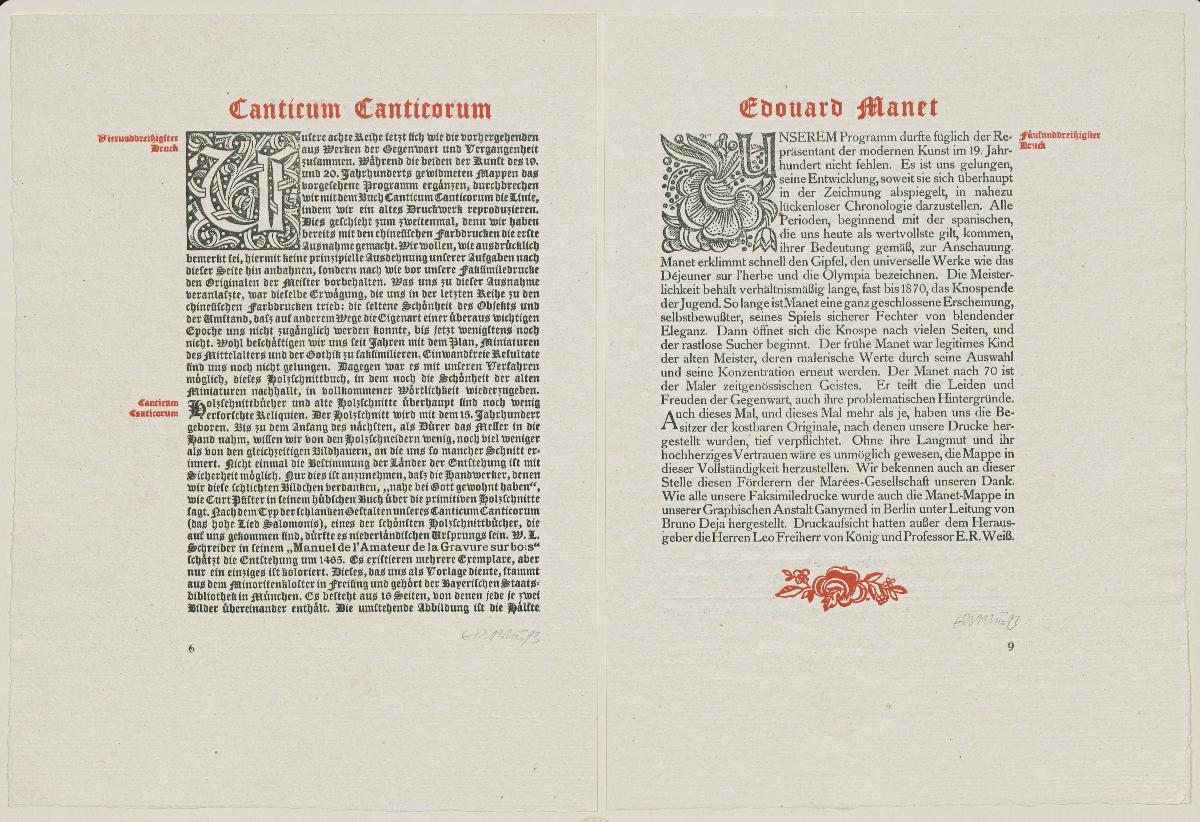 Canticum Canticorum
Vierunddreißigster
Druck
Unsere achte Reihe setzt sich wie die vorhergehenden
aus Werken der Gegenwart und Vergangenheit
zusammen. Während die beiden der Kunst des 19.
und 20. Jahrhunderts gewidmeten Mappen das
vorgesehene Programm ergänzen, durchbrechen
wir mit dem Buch Canticum Canticorum die Linie,
indem wir ein altes Druckwerk reproduzieren.
Dies geschieht zum zweitenmal, denn wir haben
bereits mit den chinesischen Farbdrucken die erste
Ausnahme gemacht. Wir wollen, wie ausdrücklich
bemerkt sei, hiermit keine prinzipielle Ausdehnung unserer Aufgaben nach
dieser Seite hin anbahnen, sondern nach wie vor unsere Faksimiledrucke
den Originalen der Meister vorbehalten. Was uns zu dieser Ausnahme
veranlaszte, war dieselbe Erwägung, die uns in der letzten Reihe zu den
chinesischen Farbdrucken trieb: die seltene Schönheit des Objekts und
der Umstand, dasz auf anderem Wege die Eigenart einer überaus wichtigen
Epoche uns nicht zugänglich werden konnte, bis jetzt wenigstens noch
nicht. Wohl beschäftigen wir uns seit Jahren mit dem Plan, Miniaturen
des Mittelalters und der Gothik zu faksimilieren. Einwandfreie Resultate
sind uns noch nicht gelungen. Dagegen war es mit unseren Verfahren
möglich, dieses Holzschnittbuch, in dem noch die Schönheit der alten
Miniaturen nachhallt, in vollkommener Wörtlichkeit wiederzugeben.
Canticum
Canticorum
Holzschnittbücher und alte Holzschnitte überhaupt sind noch wenig
erforschte Reliquien. Der Holzschnitt wird mit dem 15. Jahrhundert
geboren. Bis zu dem Anfang des nächsten, als Dürer das Messer in die
Hand nahm, wissen wir von den Holzschneidern wenig, noch viel weniger
als von den gleichzeitigen Bildhauern, an die uns so mancher Schnitt er-
innert. Nicht einmal die Bestimmung der Länder der Entstehung ist mit
Sicherheit möglich. Nur dies ist anzunehmen, dasz die Handwerker, denen
wir diese schlichten Bildchen verdanken, „nahe bei Gott gewohnt haben“,
wie Curt Pfister in seinem hübschen Buch über die primitiven Holzschnitte
sagt. Nach dem Typ der schlanken Gestalten unseres Canticum Canticorum
(das hohe Lied Salomonis), eines der schönsten Holzschnittbücher, die
auf uns gekommen sind, dürfte es niederländischen Ursprungs sein. W. L.
Schreiber in seinem „Manuel de l'Amateur de la Gravure sur bois“
schätzt die Entstehung um 1465. Es existieren mehrere Exemplare, aber
nur ein einziges ist koloriert. Dieses, das uns als Vorlage diente, stammt
aus dem Minoritenkloster in Freising und gehört der Bayerischen Staats-
bibliothek in München. Es besteht aus 16 Seiten, von denen jede je zwei
Bilder übereinander enthält. Die umstehende Abbildung ist die Hälfte
E R Weiß
6
Edouard Manet
Fünfunddreißigster
Druck
UNSEREM Programm durfte füglich der Re-
präsentant der modernen Kunst im 19. Jahr-
hundert nicht fehlen. Es ist uns gelungen,
seine Entwicklung, soweit sie sich überhaupt
in der Zeichnung abspiegelt, in nahezu
lückenloser Chronologie darzustellen. Alle
Perioden, beginnend mit der spanischen,
die uns heute als wertvollste gilt, kommen,
ihrer Bedeutung gemäß, zur Anschauung.
Manet erklimmt schnell den Gipfel, den universelle Werke wie das
Déjeuner sur l'herbe und die Olympia bezeichnen. Die Meister-
lichkeit behält verhältnismäßig lange, fast bis 1870, das Knospende
der Jugend. So lange ist Manet eine ganz geschlossene Erscheinung,
selbstbewußter, seines Spiels sicherer Fechter von blendender
Eleganz. Dann öffnet sich die Knospe nach vielen Seiten, und
der rastlose Sucher beginnt. Der frühe Manet war legitimes Kind
der alten Meister, deren malerische Werte durch seine Auswahl
und seine Konzentration erneut werden. Der Manet nach 70 ist
der Maler zeitgenössischen Geistes. Er teilt die Leiden und
Freuden der Gegenwart, auch ihre problematischen Hintergründe.
Auch dieses Mal, und dieses Mal mehr als je, haben uns die Be-
sitzer der kostbaren Originale, nach denen unsere Drucke her-
gestellt wurden, tief verpflichtet. Ohne ihre Langmut und ihr
hochherziges Vertrauen wäre es unmöglich gewesen, die Mappe in
dieser Vollständigkeit herzustellen. Wir bekennen auch an dieser
Stelle diesen Förderern der Marées-Gesellschaft unseren Dank.
Wie alle unsere Faksimiledrucke wurde auch die Manet-Mappe in
unserer Graphischen Anstalt Ganymed in Berlin unter Leitung von
Bruno Deja hergestellt. Druckaufsicht hatten außer dem Heraus-
geber die Herren Leo Freiherr von König und Professor E. R. Weiß.
E R Weiß
9